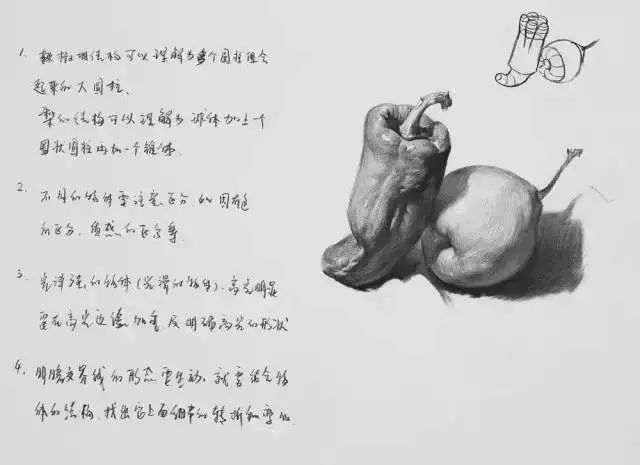 1. 辣椒的结构可以理解为多个圆柱组合
起来的大圆柱、
梨的结构可以理解为 球体加上个
圆状圆柱再加一个锥体.
2. 不同的物体要注意区分 如固有色
的区分、质感的区分等
3. 光泽强的物体(光滑的物体).高光明显
要在高光边缘加重 及明确高光的形状
4. 明暗交界线的形态要生动,就要结合物
体的结构.找出它上面细节的转折和变化